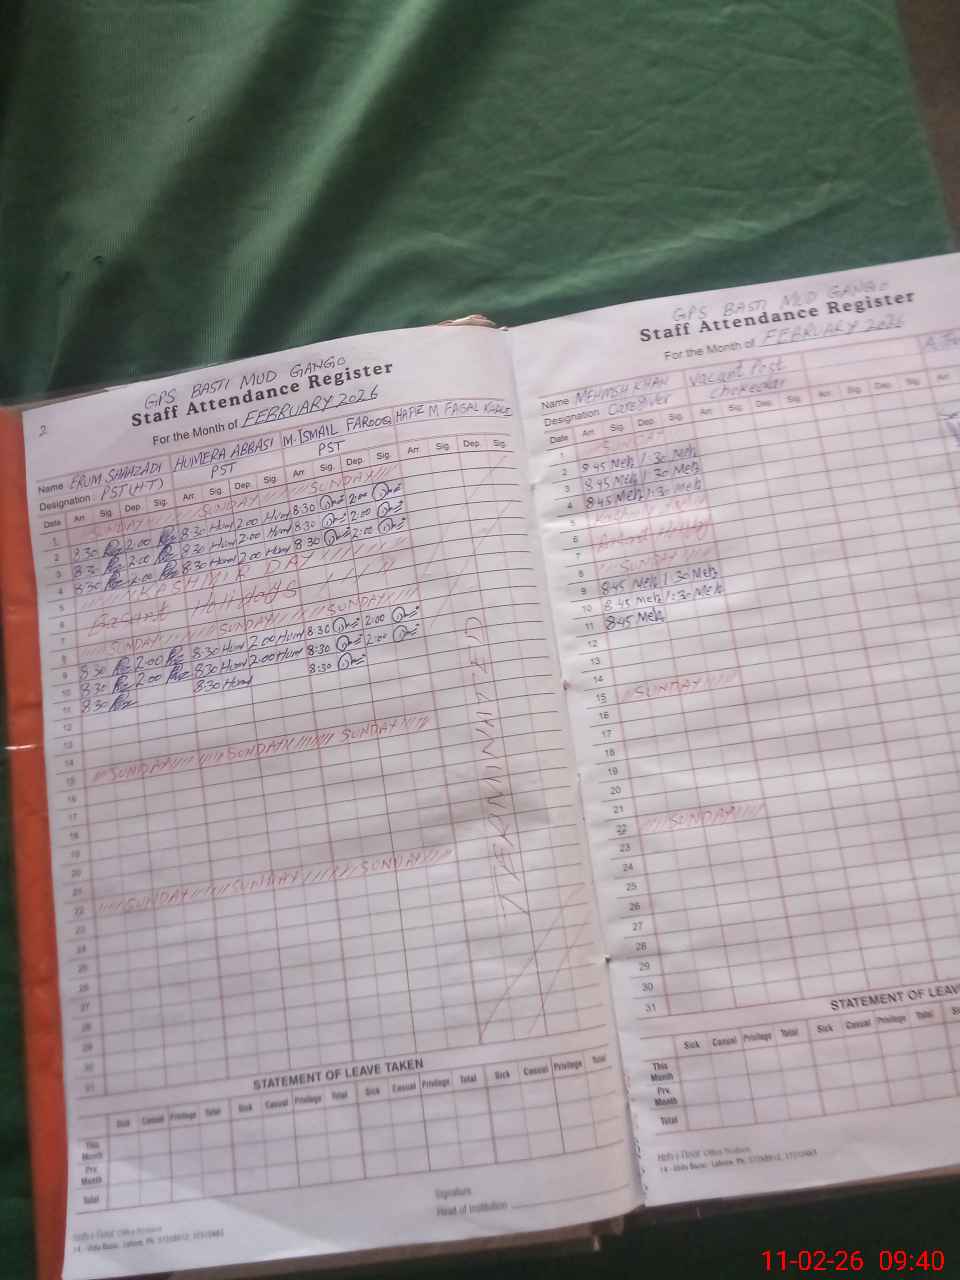 2
GPS BASTI MUD GANGO
Staff Attendance Register
For the Month of FEBRUARY 2026
Name ERUM SHAHZADI HUMERA ABBASI M. ISMAIL FAROOQ HAFIZ M. FAISAL
Designation: PST (H-T) PST PST
Date Arr. Sig. Dep. Sig. Arr. Sig. Dep. Sig. Arr. Sig. Dep. Sig. Arr. Sig. Dep. Sig.
1 SUNDAY SUNDAY SUNDAY
2 8:30 2:00 8:30 Hum 2:00 Hum 8:30 2:00
3 8:30 2:00 8:30 Hum 2:00 Hum 8:30 2:00
4 8:30 2:00 8:30 Hum 2:00 Hum 8:30 2:00
5 KASHMIR DAY
6 Holidays
7
8 SUNDAY SUNDAY SUNDAY
9 8:30 2:00 8:30 Hum 2:00 Hum 8:30 2:00
10 8:30 2:00 8:30 Hum 2:00 Hum 8:30 2:00
11 8:30 8:30 Hum 8:30
12
13
14
15 SUNDAY SUNDAY SUNDAY
16
17
18
19
20
21
22 SUNDAY SUNDAY SUNDAY
23
24
25
26
27
28
29
30
31
STATEMENT OF LEAVE TAKEN
Sick Casual Privilege Total Sick Casual Privilege Total Sick Casual Privilege Total Sick Casual Privilege Total
This Month
Prv. Month
Total
Signature
Head of Institution
GPS BASTI MUD GANGO
Staff Attendance Register
For the Month of FEBRUARY 2026
Name MEHWISH KHAN Vacant Post
Designation Caregiver Chokedar
Date Arr. Sig. Dep. Sig. Arr. Sig. Dep. Sig. Arr. Sig. Dep. Sig. Arr.
1 SUNDAY
2 8:45 Meh 1:30 Meh
3 8:45 Meh 1:30 Meh
4 8:45 Meh 1:30 Meh
5
6
7
8 SUNDAY
9 8:45 Meh 1:30 Meh
10 8:45 Meh 1:30 Meh
11 8:45 Meh
12
13
14
15 SUNDAY
16
17
18
19
20
21
22 SUNDAY
23
24
25
26
27
28
29
30
31
STATEMENT OF LEAV
Sick Casual Privilege Total Sick Casual Privilege Total
This Month
Prv. Month
Total
11-02-26 09:40